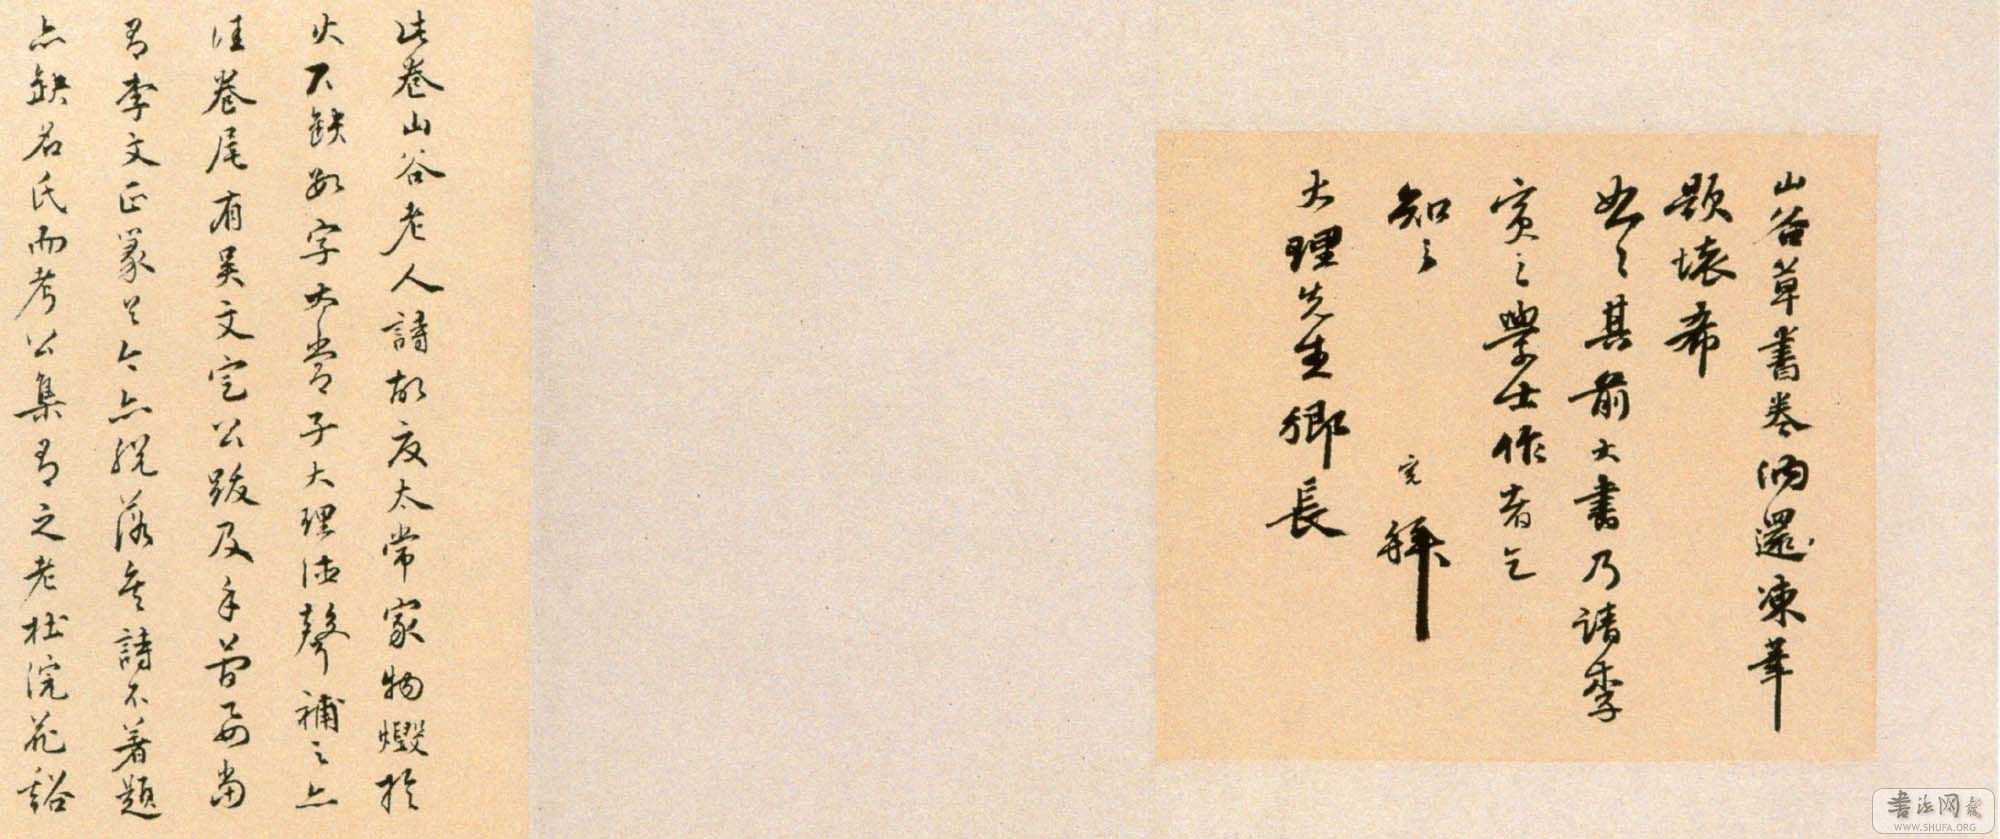 山谷草書卷納還凍筆
題壞希
恕之其前大書乃請李
賓之學士作者乞
知之 寬拜
大理先生鄉長
此卷山谷老人詩故友太常家物燬於
火不缺數字太常子大理德聲補之亦
佳卷尾有吳文定公跋及手簡要當
有李文正篆今亦脫落矣詩不著題
亦缺名氏而考公集有之老杜浣花谿
書法网
WWW.SHUFA.ORG